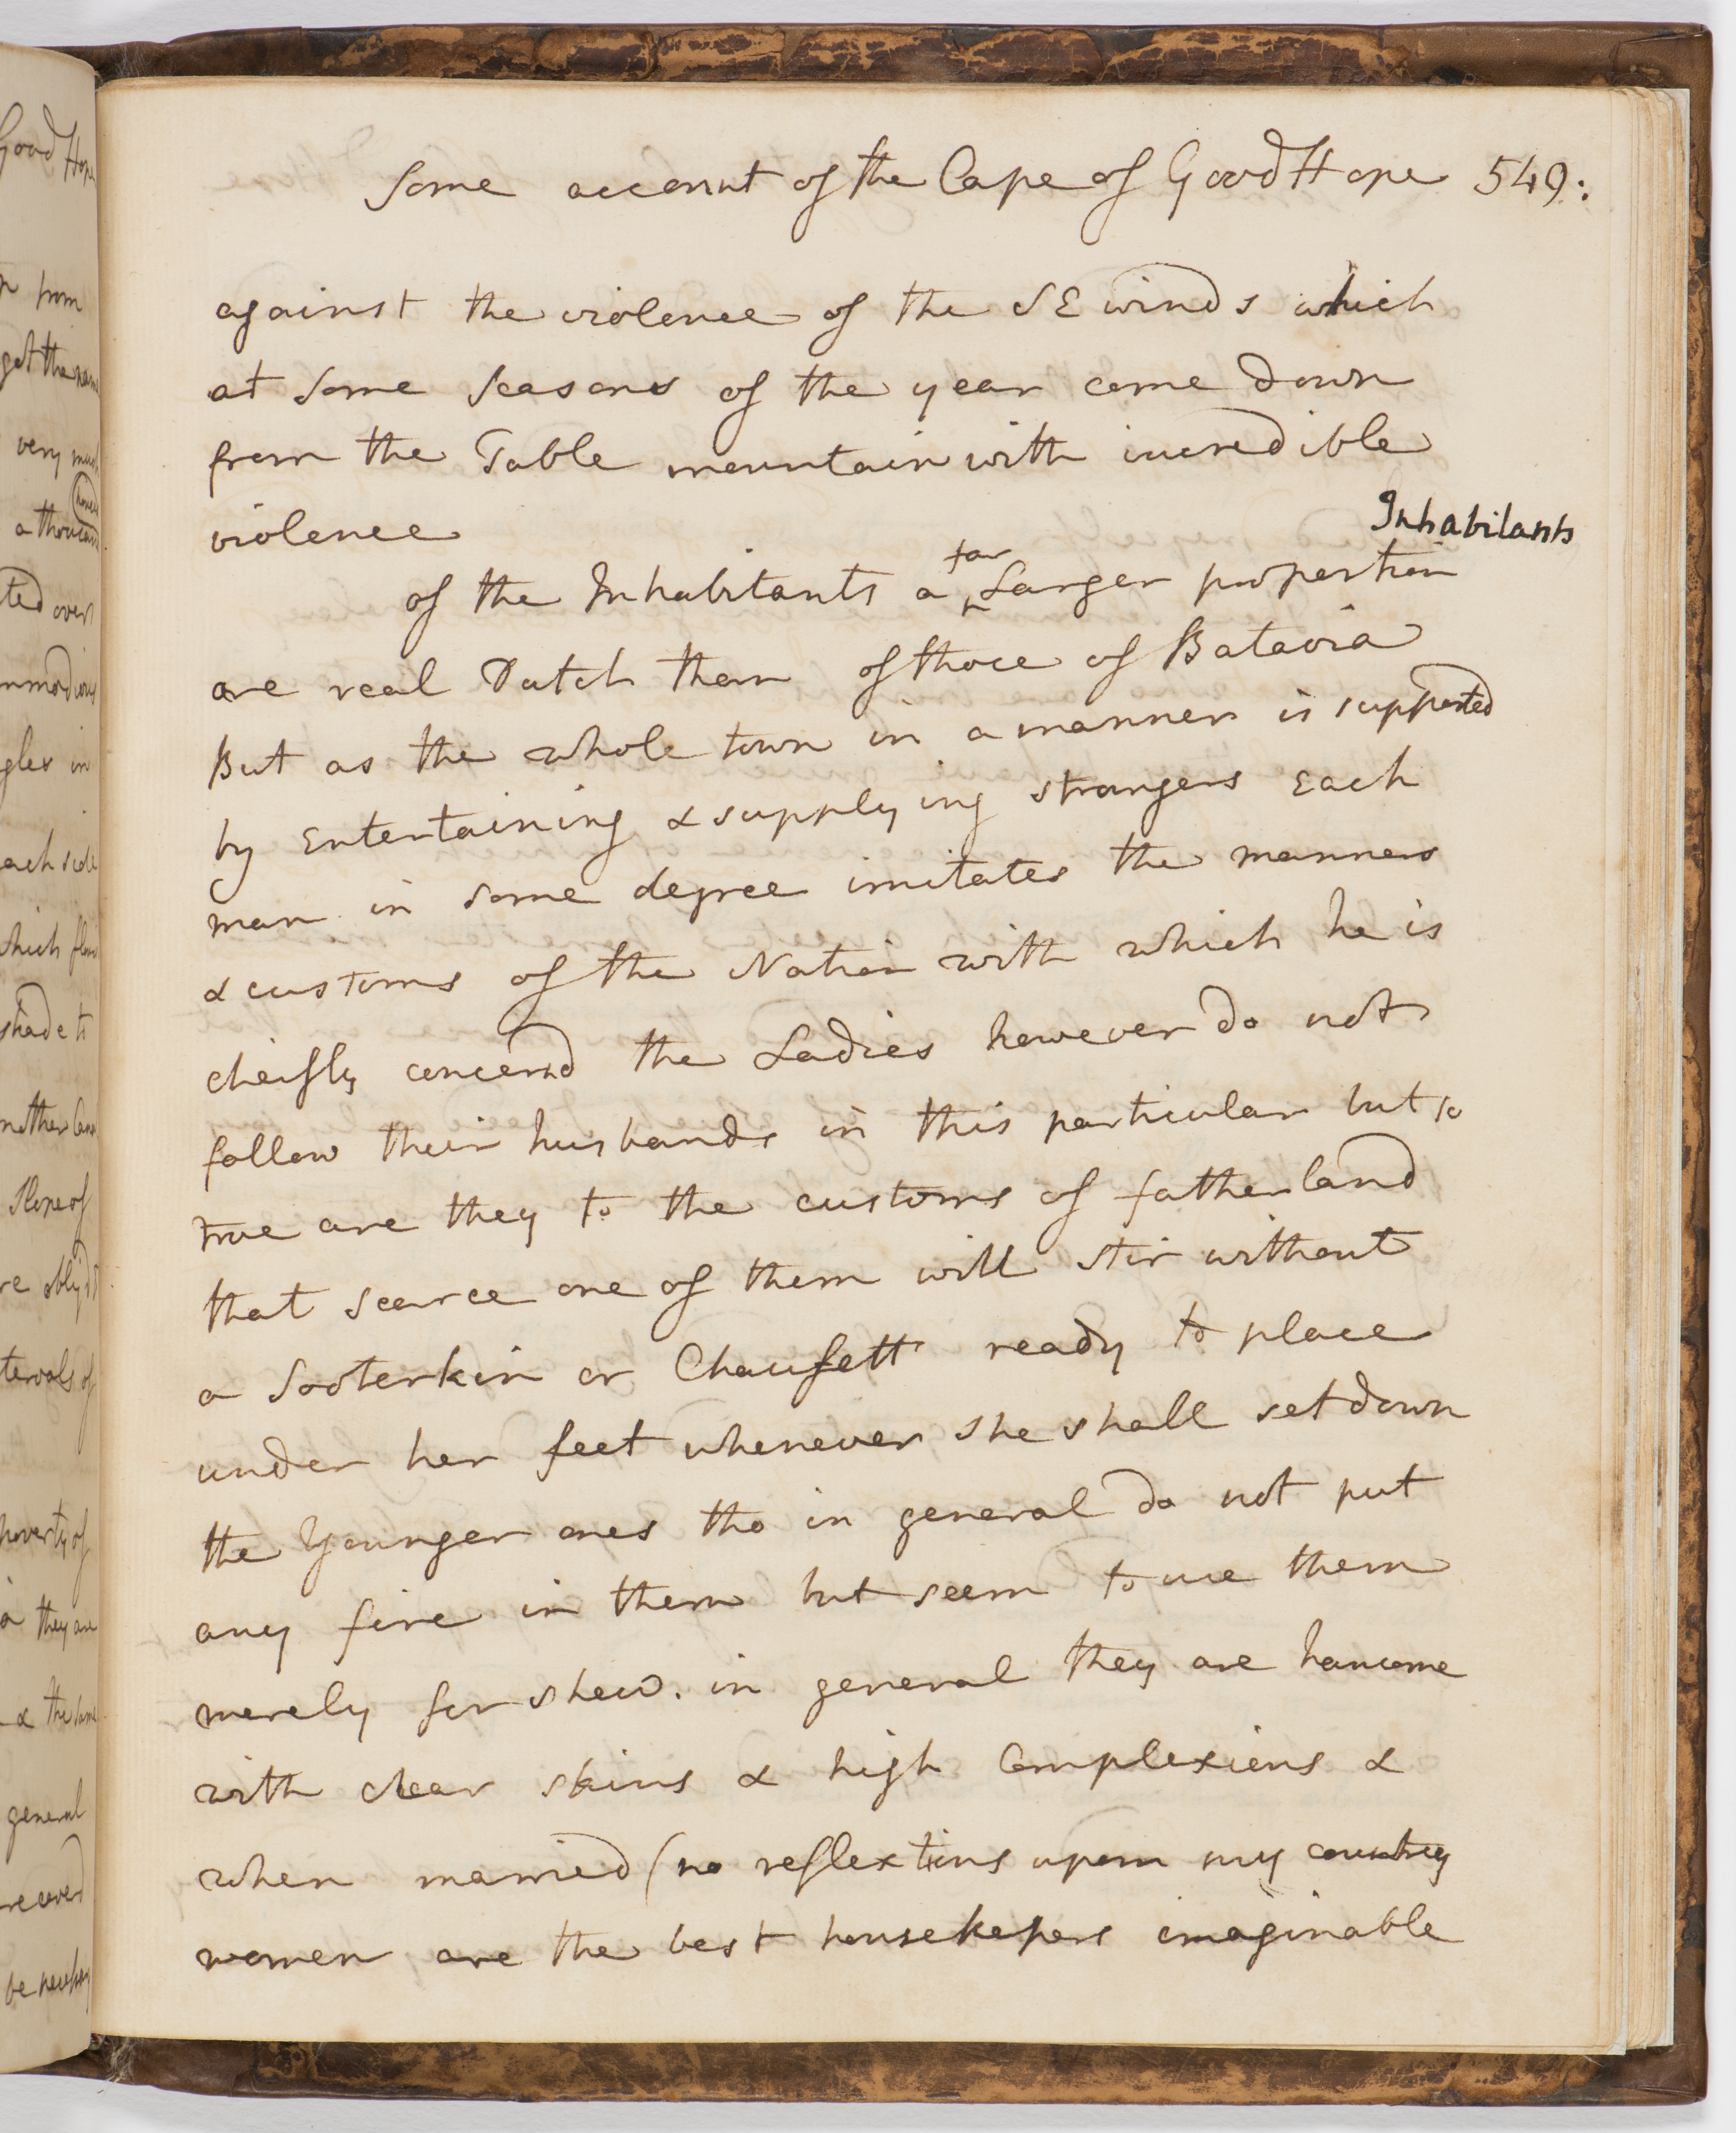 Some account of the Cape of Good Hope 549:
against the violence of the SE winds which
at some seasons of the year come down
from the Table mountain with incredible
violence
Inhabitants
of the Inhabitants a far Larger proportion
are real Dutch than of those of Batavia
But as the whole town in a manner is supported
by Entertaining & supplying strangers Each
man in some degree imitates the manners
& customs of the Nation with which he is
cheifly concernd the Ladies however do not
follow their husbands in this particular but so
true are they to the customs of fatherland
that scarce one of them will stir without
a Sooterkin or Chaufett ready to place
under her feet whenever she shall set down
the Younger ones tho in general do not put
any fire in them but seem to use them
merely for shew. in general they are hansome
with clear skins & high Complexions &
when married (no reflextions upon my country
women are the best housekepers imaginable
Good Hope
from
get the name
very much
a thousand
houses
ted over
glex in
ach side
which flows
shade to
Slope of
tervals of
poverty of
they are
& the same
general
recoverd